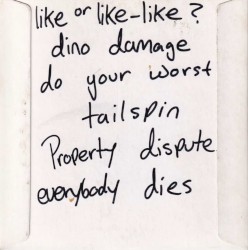 like or like-like?
dino damage
do your worst
tailspin
Property dispute
everybody dies